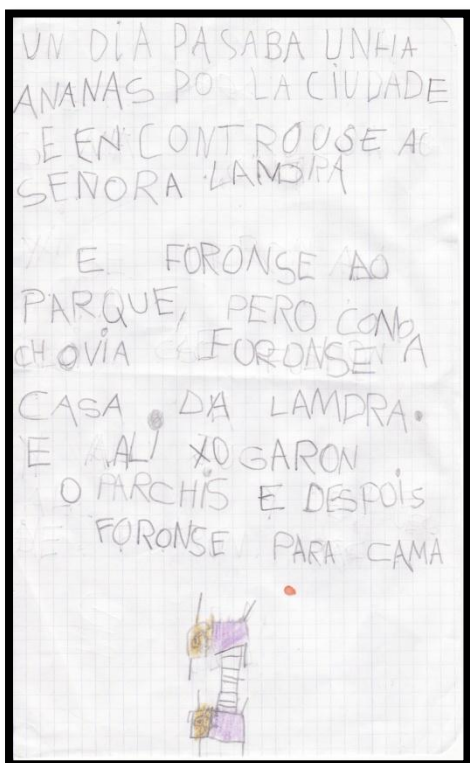 UN DÍA PASABA UNHA
ANANAS PO LA CIUDADE
E ENCONTROUSE AO
SEÑORA LAMDRA
E FORONSE AO
PARQUE, PERO COMO
CHOVIA FORONSE A
CASA DA LAMDRA.
E ALI XOGARON
O PARCHÍS E DESPOIS
FORONSE PARA CAMA